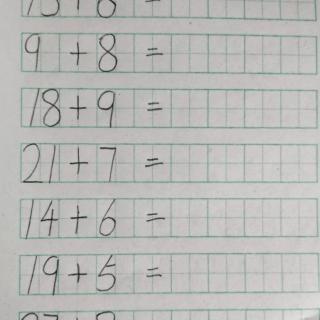 9 + 8 =
18 + 9 =
21 + 7 =
14 + 6 =
19 + 5 =